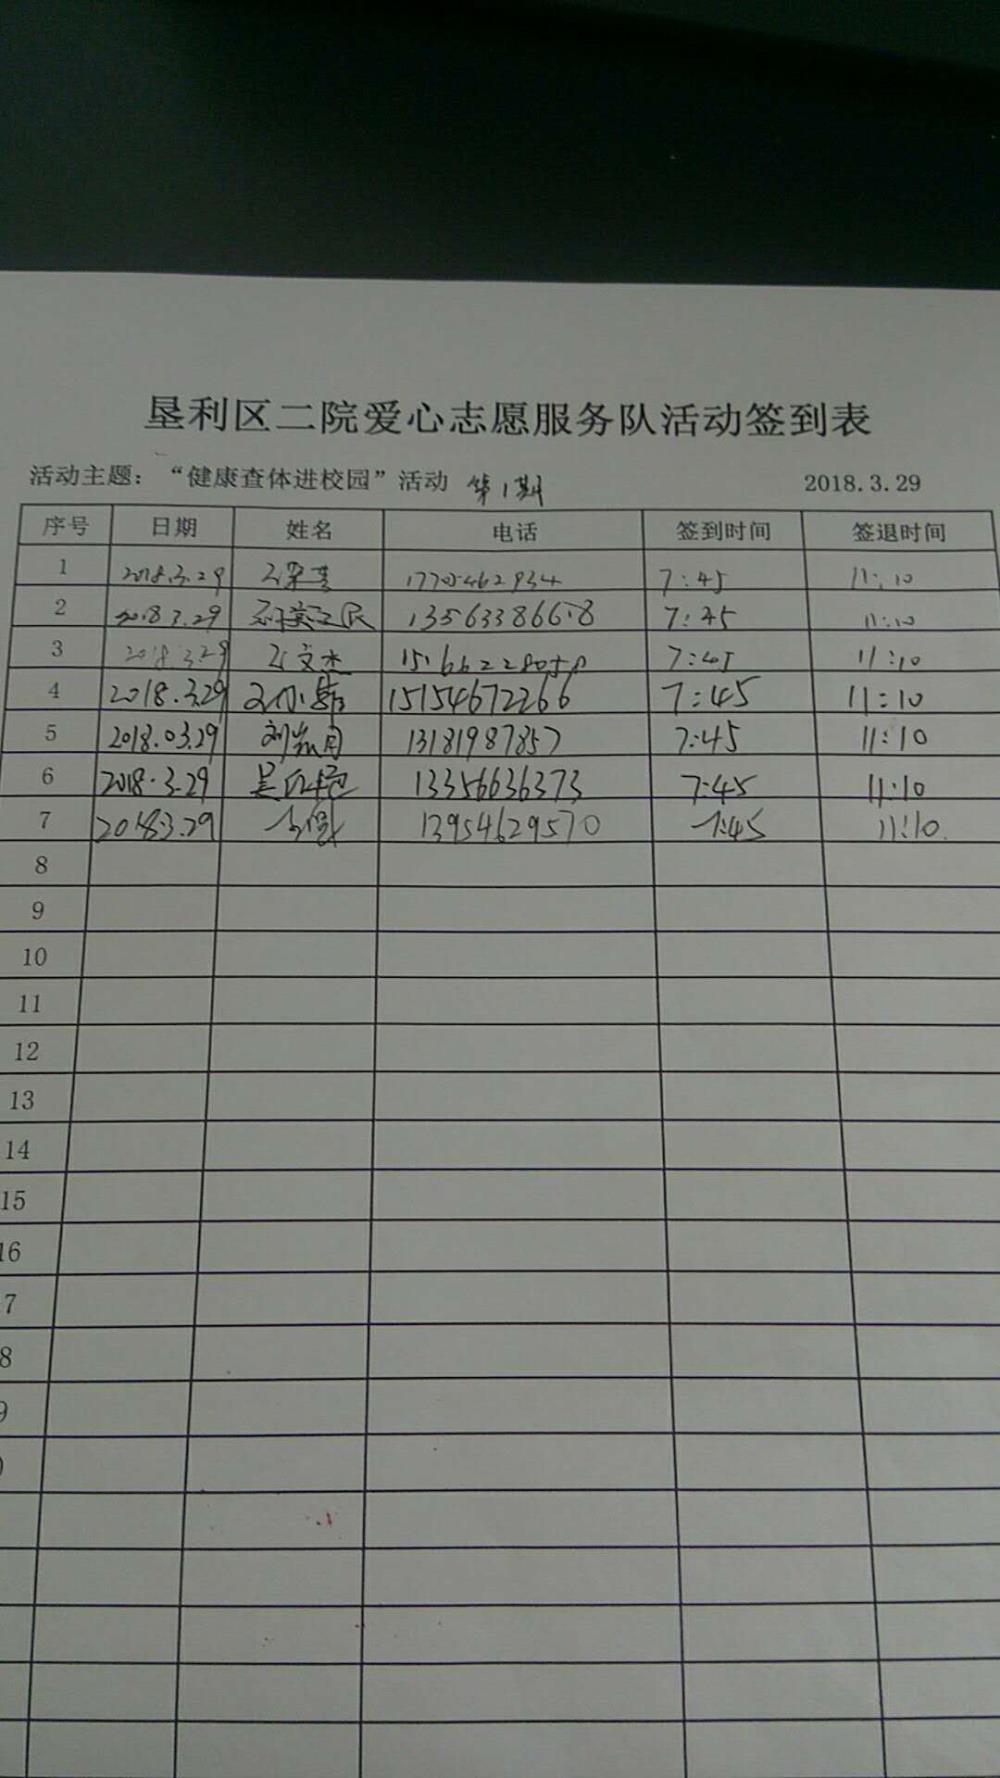 垦利区二院爱心志愿服务队活动签到表
活动主题：“健康查体进校园”活动 第1期 2018.3.29
序号 日期 姓名 电话 签到时间 签退时间
1 2018.3.29 7:45 11:10
2 2018.3.29 13563386658 7:45 11:10
3 2018.3.29 文杰 7:45 11:10
4 2018.3.29 15154672266 7:45 11:10
5 2018.03.29 刘 13181987857 7:45 11:10
6 2018.3.29 吴 13356636373 7:45 11:10
7 2018.3.29 13954629570 7:45 11:10
8
9
10
11
12
13
14
15
16
7
8
9